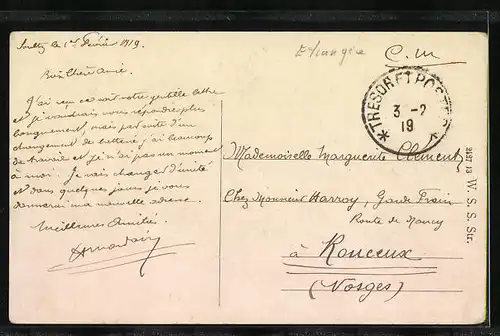 Soultz le 1er Février 1919.
Bien Chère Amie.
J'ai reçu ce soir votre gentille lettre
et je voudrais vous répondre plus
longuement, mais par suite d'un
changement de batterie j'ai beaucoup
de travail et je n'ai pas un moment
à moi. Je vais changer d'unité
et dans quelques jours je vous
donnerai ma nouvelle adresse.
Meilleures Amitiés
C. M
TRESOR ET POSTES
3 -2
19
Mademoiselle Marguerite Clement
Chez Monsieur Harroy, Garde Frein
Route de Nancy
à Rouceux
(Vosges)
W. S. S. Str.